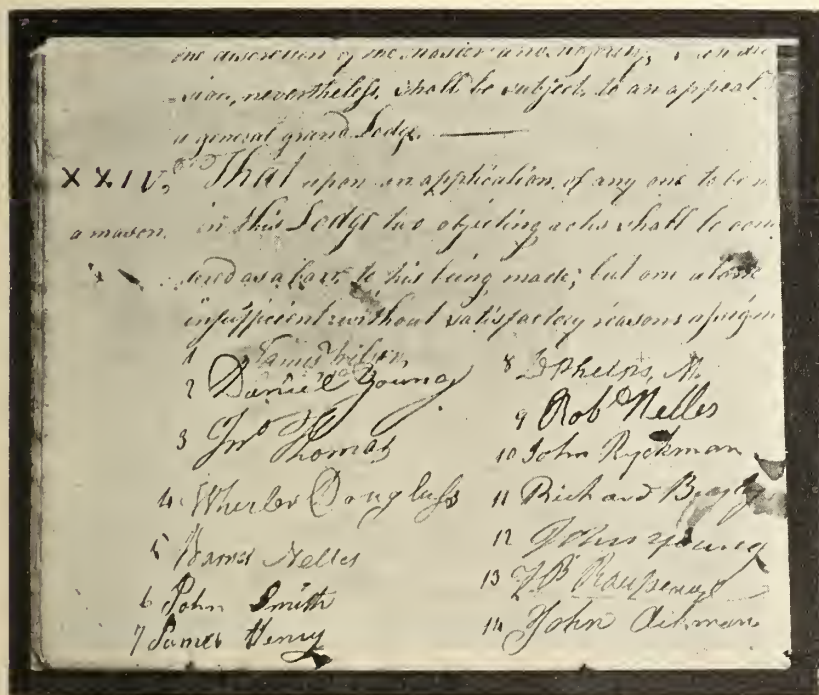 the discretion of the Master and majority,
sion, nevertheless, shall be subject to an appeal
a general grand Lodge.
XXIV, That upon an application of any one to be m
a mason in this Lodge two objecting votes shall be con
dered as a bar to his being made; but one alone
insufficient without satisfactory reasons assign
1 James Wilson
2 Daniel Young
3 Jno Thomas
4 Wheeler Douglass
5 Warner Nelles
6 John Smith
7 James Henry
8 Phelps, M.
9 Robt Nelles
10 John Ryckman
11 Richard
12 John Young
13
14 John Aikman